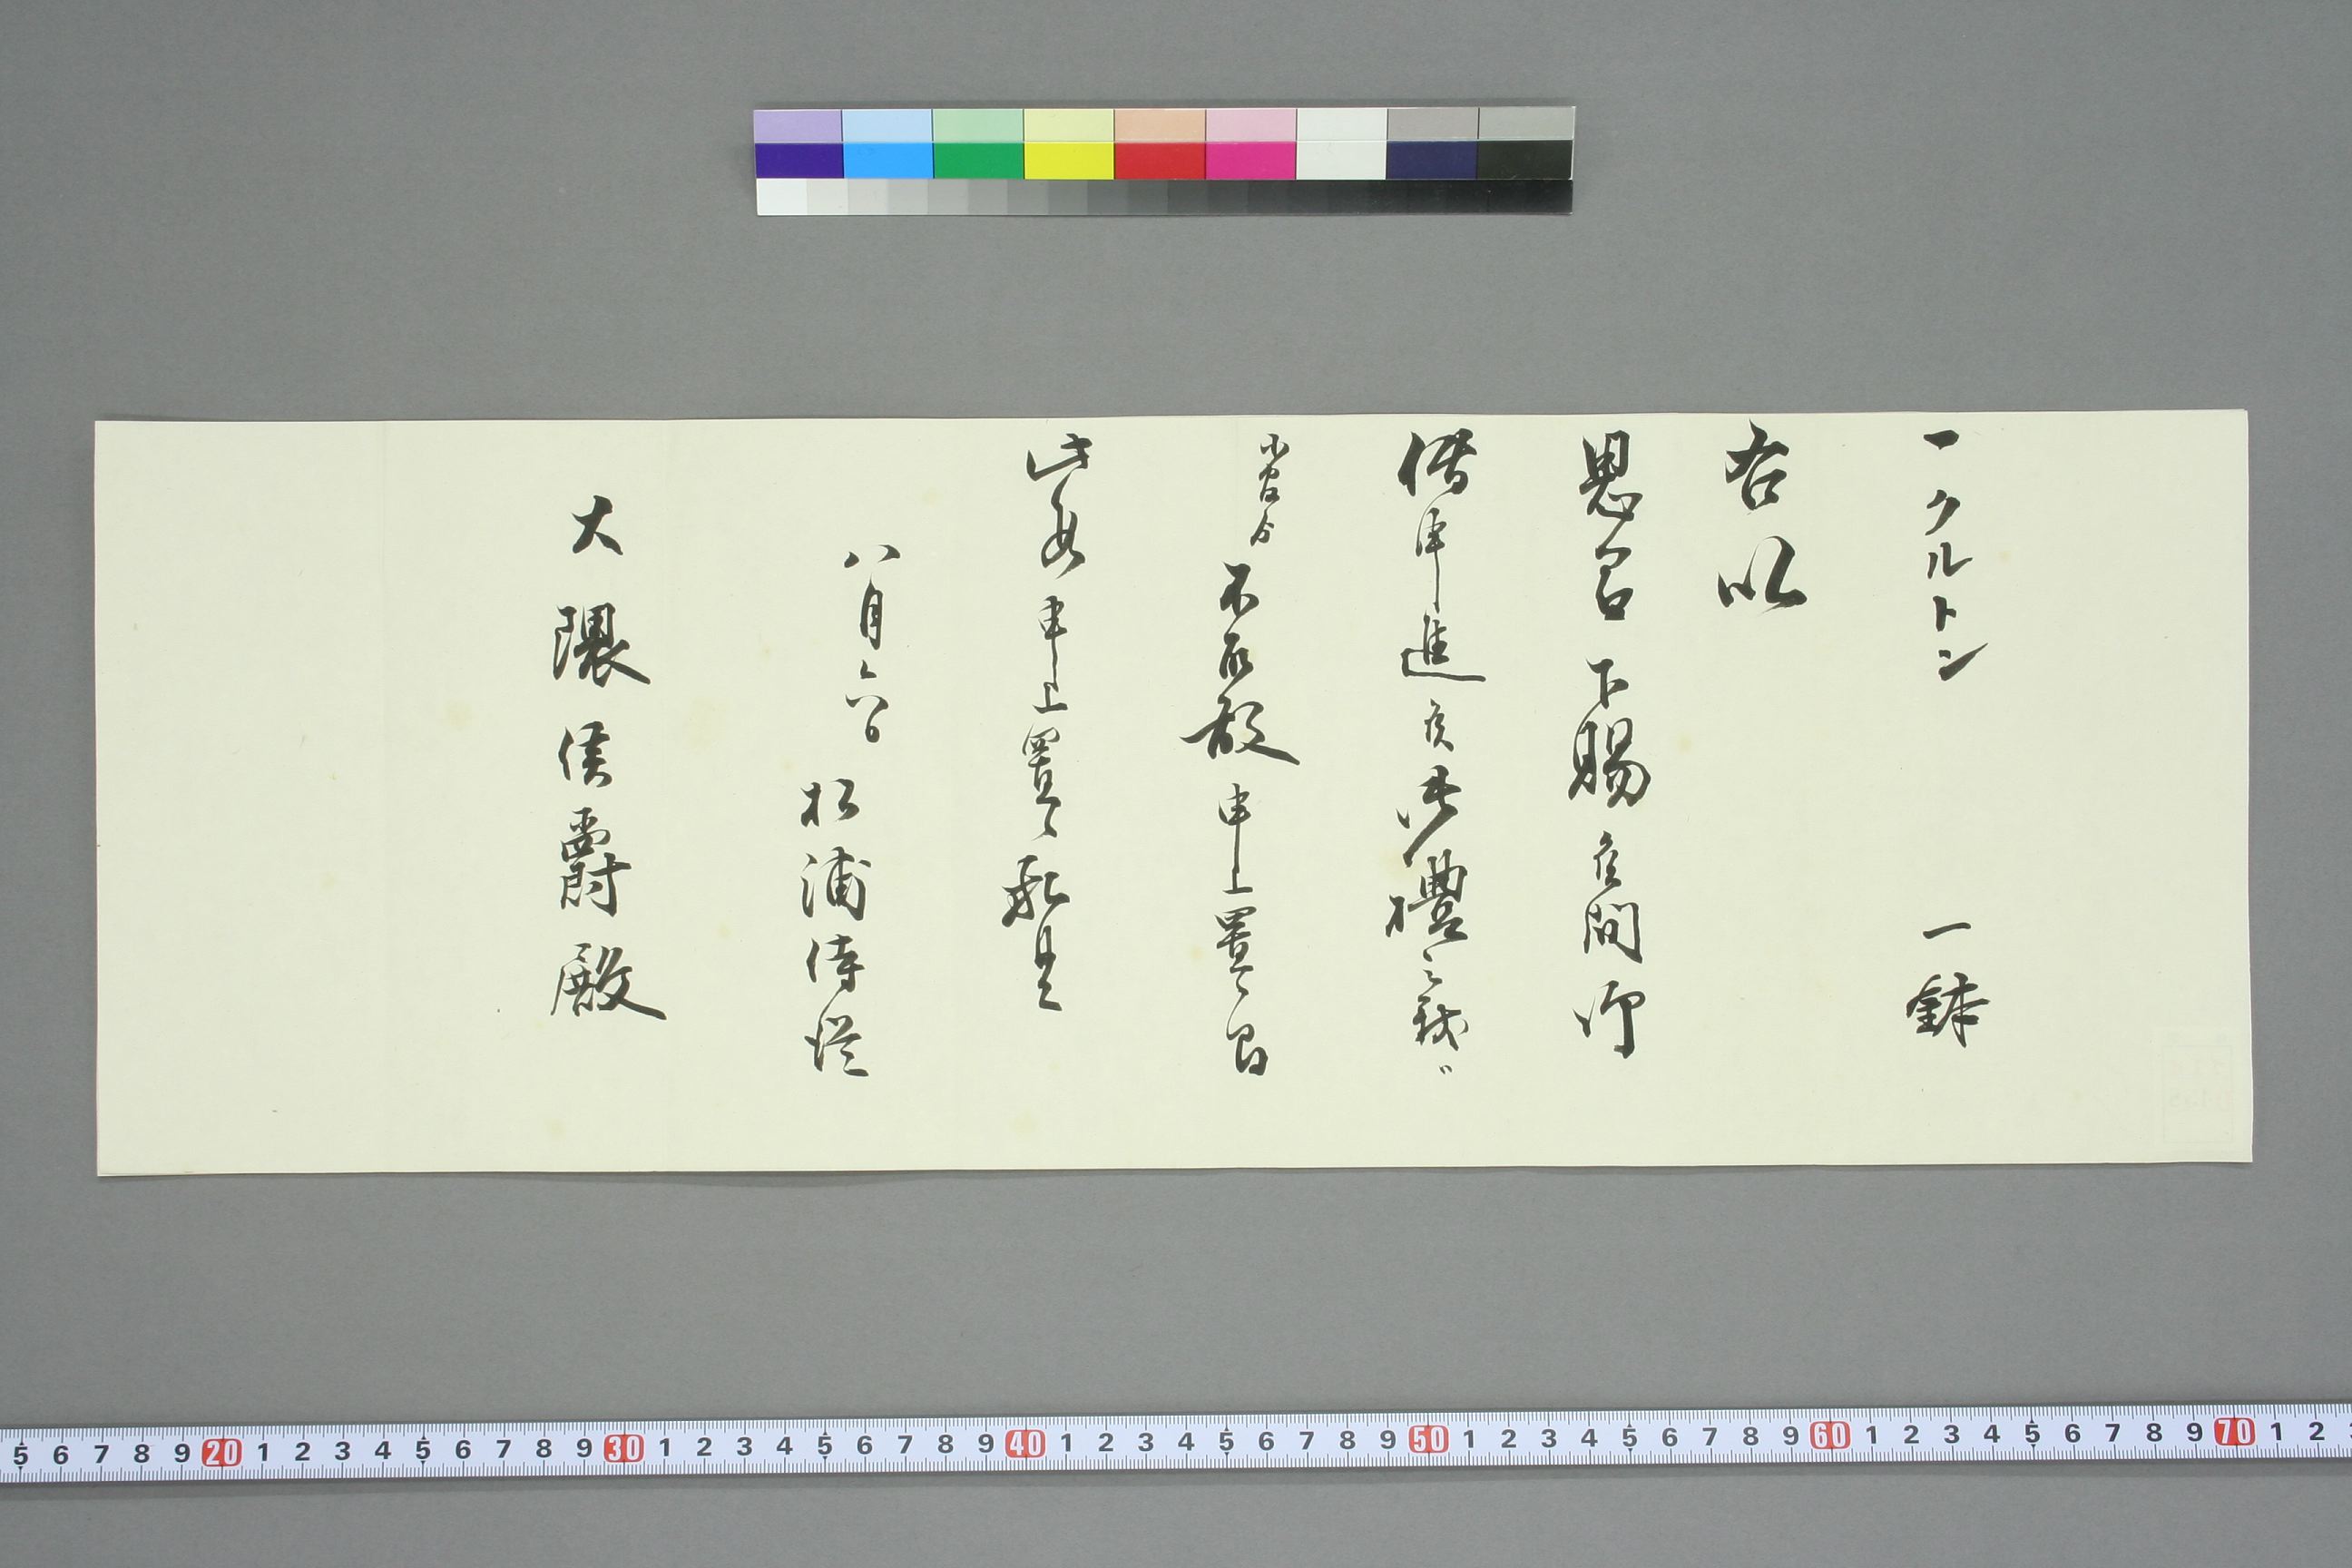 一クルトン 一鉢
右以
思召下賜候間御
傳申進候御禮之義ハ
小官ゟ不取敢申上置候間
此段申上置候也
八月六日
松浦侍従
大隈侯爵殿
5 6 7 8 9 20 1 2 3 4 5 6 7 8 9 30 1 2 3 4 5 6 7 8 9 40 1 2 3 4 5 6 7 8 9 50 1 2 3 4 5 6 7 8 9 60 1 2 3 4 5 6 7 8 9 70 1 2